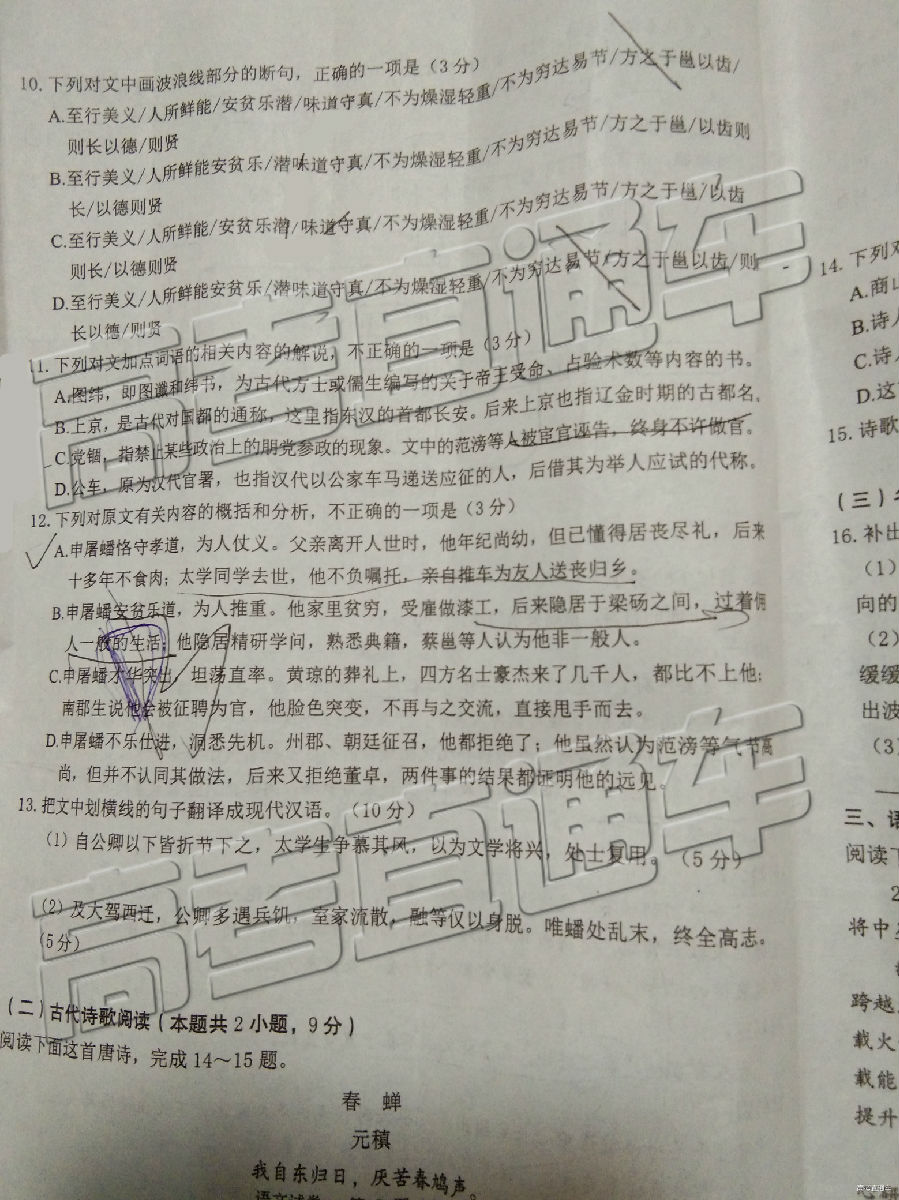 10. 下列对文中画波浪线部分的断句，正确的一项是（3分）
A.至行美义/人所鲜能/安贫乐潜/味道守真/不为燥湿轻重/不为穷达易节/方之于邕以齿/
则长以德/则贤
B.至行美义/人所鲜能安贫乐/潜味道守真/不为燥湿轻重/不为穷达易节/方之于邕/以齿则
长/以德则贤
C.至行美义/人所鲜能/安贫乐潜/味道守真/不为燥湿轻重/不为穷达易节/方之于邕/以齿
则长/以德则贤
D.至行美义/人所鲜能安贫乐/潜味道守真/不为燥湿轻重/不为穷达易节/方之于邕以齿/则
长以德/则贤
11. 下列对文加点词语的相关内容的解说，不正确的一项是（3分）
A.图纬，即图谶和纬书，为古代方士或儒生编写的关于帝王受命、占验术数等内容的书。
B.上京，是古代对国都的通称，这里指东汉的首都长安。后来上京也指辽金时期的古都名。
C.党锢，指禁止某些政治上的朋党参政的现象。文中的范滂等人被宦官诬告，终身不许做官。
D.公车，原为汉代官署，也指汉代以公家车马递送应征的人，后借其为举人应试的代称。
12. 下列对原文有关内容的概括和分析，不正确的一项是（3分）
A.申屠蟠恪守孝道，为人仗义。父亲离开人世时，他年纪尚幼，但已懂得居丧尽礼，后来
十多年不食肉；太学同学去世，他不负嘱托，亲自推车为友人送丧归乡。
B.申屠蟠安贫乐道，为人推重。他家里贫穷，受雇做漆工，后来隐居于梁砀之间，过着佣
人一般的生活；他隐居精研学问，熟悉典籍，蔡邕等人认为他非一般人。
C.申屠蟠才华突出，坦荡直率。黄琼的葬礼上，四方名士豪杰来了几千人，都比不上他；
南郡生说他会被征聘为官，他脸色突变，不再与之交流，直接甩手而去。
D.申屠蟠不乐仕进，洞悉先机。州郡、朝廷征召，他都拒绝了；他虽然认为范滂等气节高
尚，但并不认同其做法，后来又拒绝董卓，两件事的结果都证明他的远见。
13. 把文中划横线的句子翻译成现代汉语。（10分）
（1）自公卿以下皆折节下之，太学生争慕其风，以为文学将兴，处士复用。（5分）
（2）及大驾西迁，公卿多遇兵饥，室家流散，融等仅以身脱。唯蟠处乱末，终全高志。
（5分）
（二）古代诗歌阅读（本题共2小题，9分）
阅读下面这首唐诗，完成14～15题。
春 蝉
元稹
我自东归日，厌苦春鸠声。
14. 下列对
A.商山
B.诗人
C.诗人
D.这
15. 诗歌
（三）名
16. 补出
（1）
向的
（2）
缓缓
出波
（3）
三、语
阅读下
2
将中
跨越
载火
载能
提升
高考直通车
高考直通车